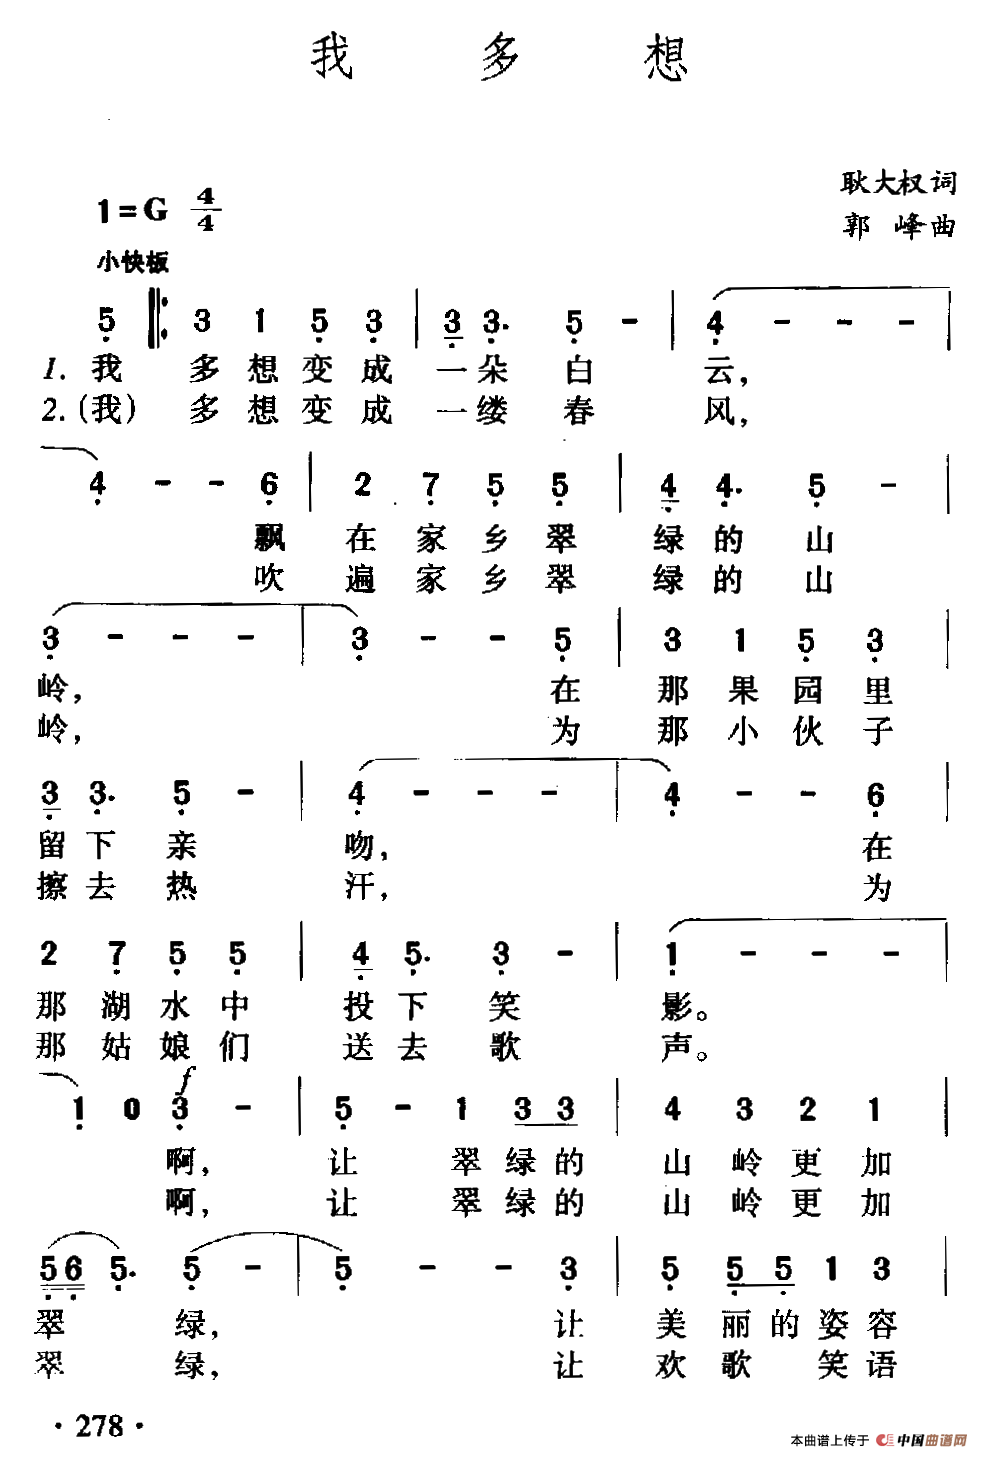 我多想
耿大权词
1=G 4/4
郭峰曲
小快板
5 3 1 5 3 3 3. 5 - 4 - - -
1. 我 多 想 变 成 一 朵 白 云，
2.(我) 多 想 变 成 一 缕 春 风，
4 - - 6 2 7 5 5 4 4. 5 -
飘 在 家 乡 翠 绿 的 山
吹 遍 家 乡 翠 绿 的 山
3 - - - 3 - - 5 3 1 5 3
岭， 在 那 果 园 里
岭， 为 那 小 伙 子
3 3. 5 - 4 - - - 4 - - 6
留 下 亲 吻， 在
擦 去 热 汗， 为
2 7 5 5 4 5. 3 - 1 - - -
那 湖 水 中 投 下 笑 影。
那 姑 娘 们 送 去 歌 声。
f
1 0 3 - 5 - 1 3 3 4 3 2 1
啊， 让 翠 绿 的 山 岭 更 加
啊， 让 翠 绿 的 山 岭 更 加
5 6 5. 5 - 5 - - 3 5 5 5 1 3
翠 绿， 让 美 丽 的 姿 容
翠 绿， 让 欢 歌 笑 语
·278·
本曲谱上传于 中国曲谱网